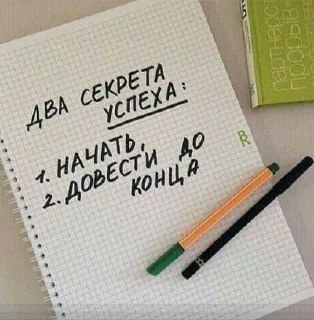 ДВА СЕКРЕТА
УСПЕХА:
1. НАЧАТЬ,
2. ДОВЕСТИ ДО
КОНЦА
партнёрство
прорыв